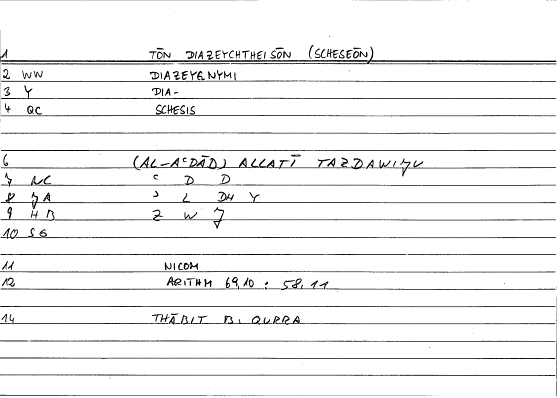 1 TŌN DIAZEYCHTHEISŌN (SCHESEŌN)
2 WW DIAZEYGNYMI
3 Y DIA-
4 QC SCHESIS
6 (AL-AʿDĀD) ALLATĪ TAZDAWIǦU
7 NC ʿ D D
8 ǦA ʾ L DH Y
9 HB Z W Ǧ
10 SG
11 NICOM
12 ARITHM 69,10 : 58,11
14 THĀBIT B. QURRA